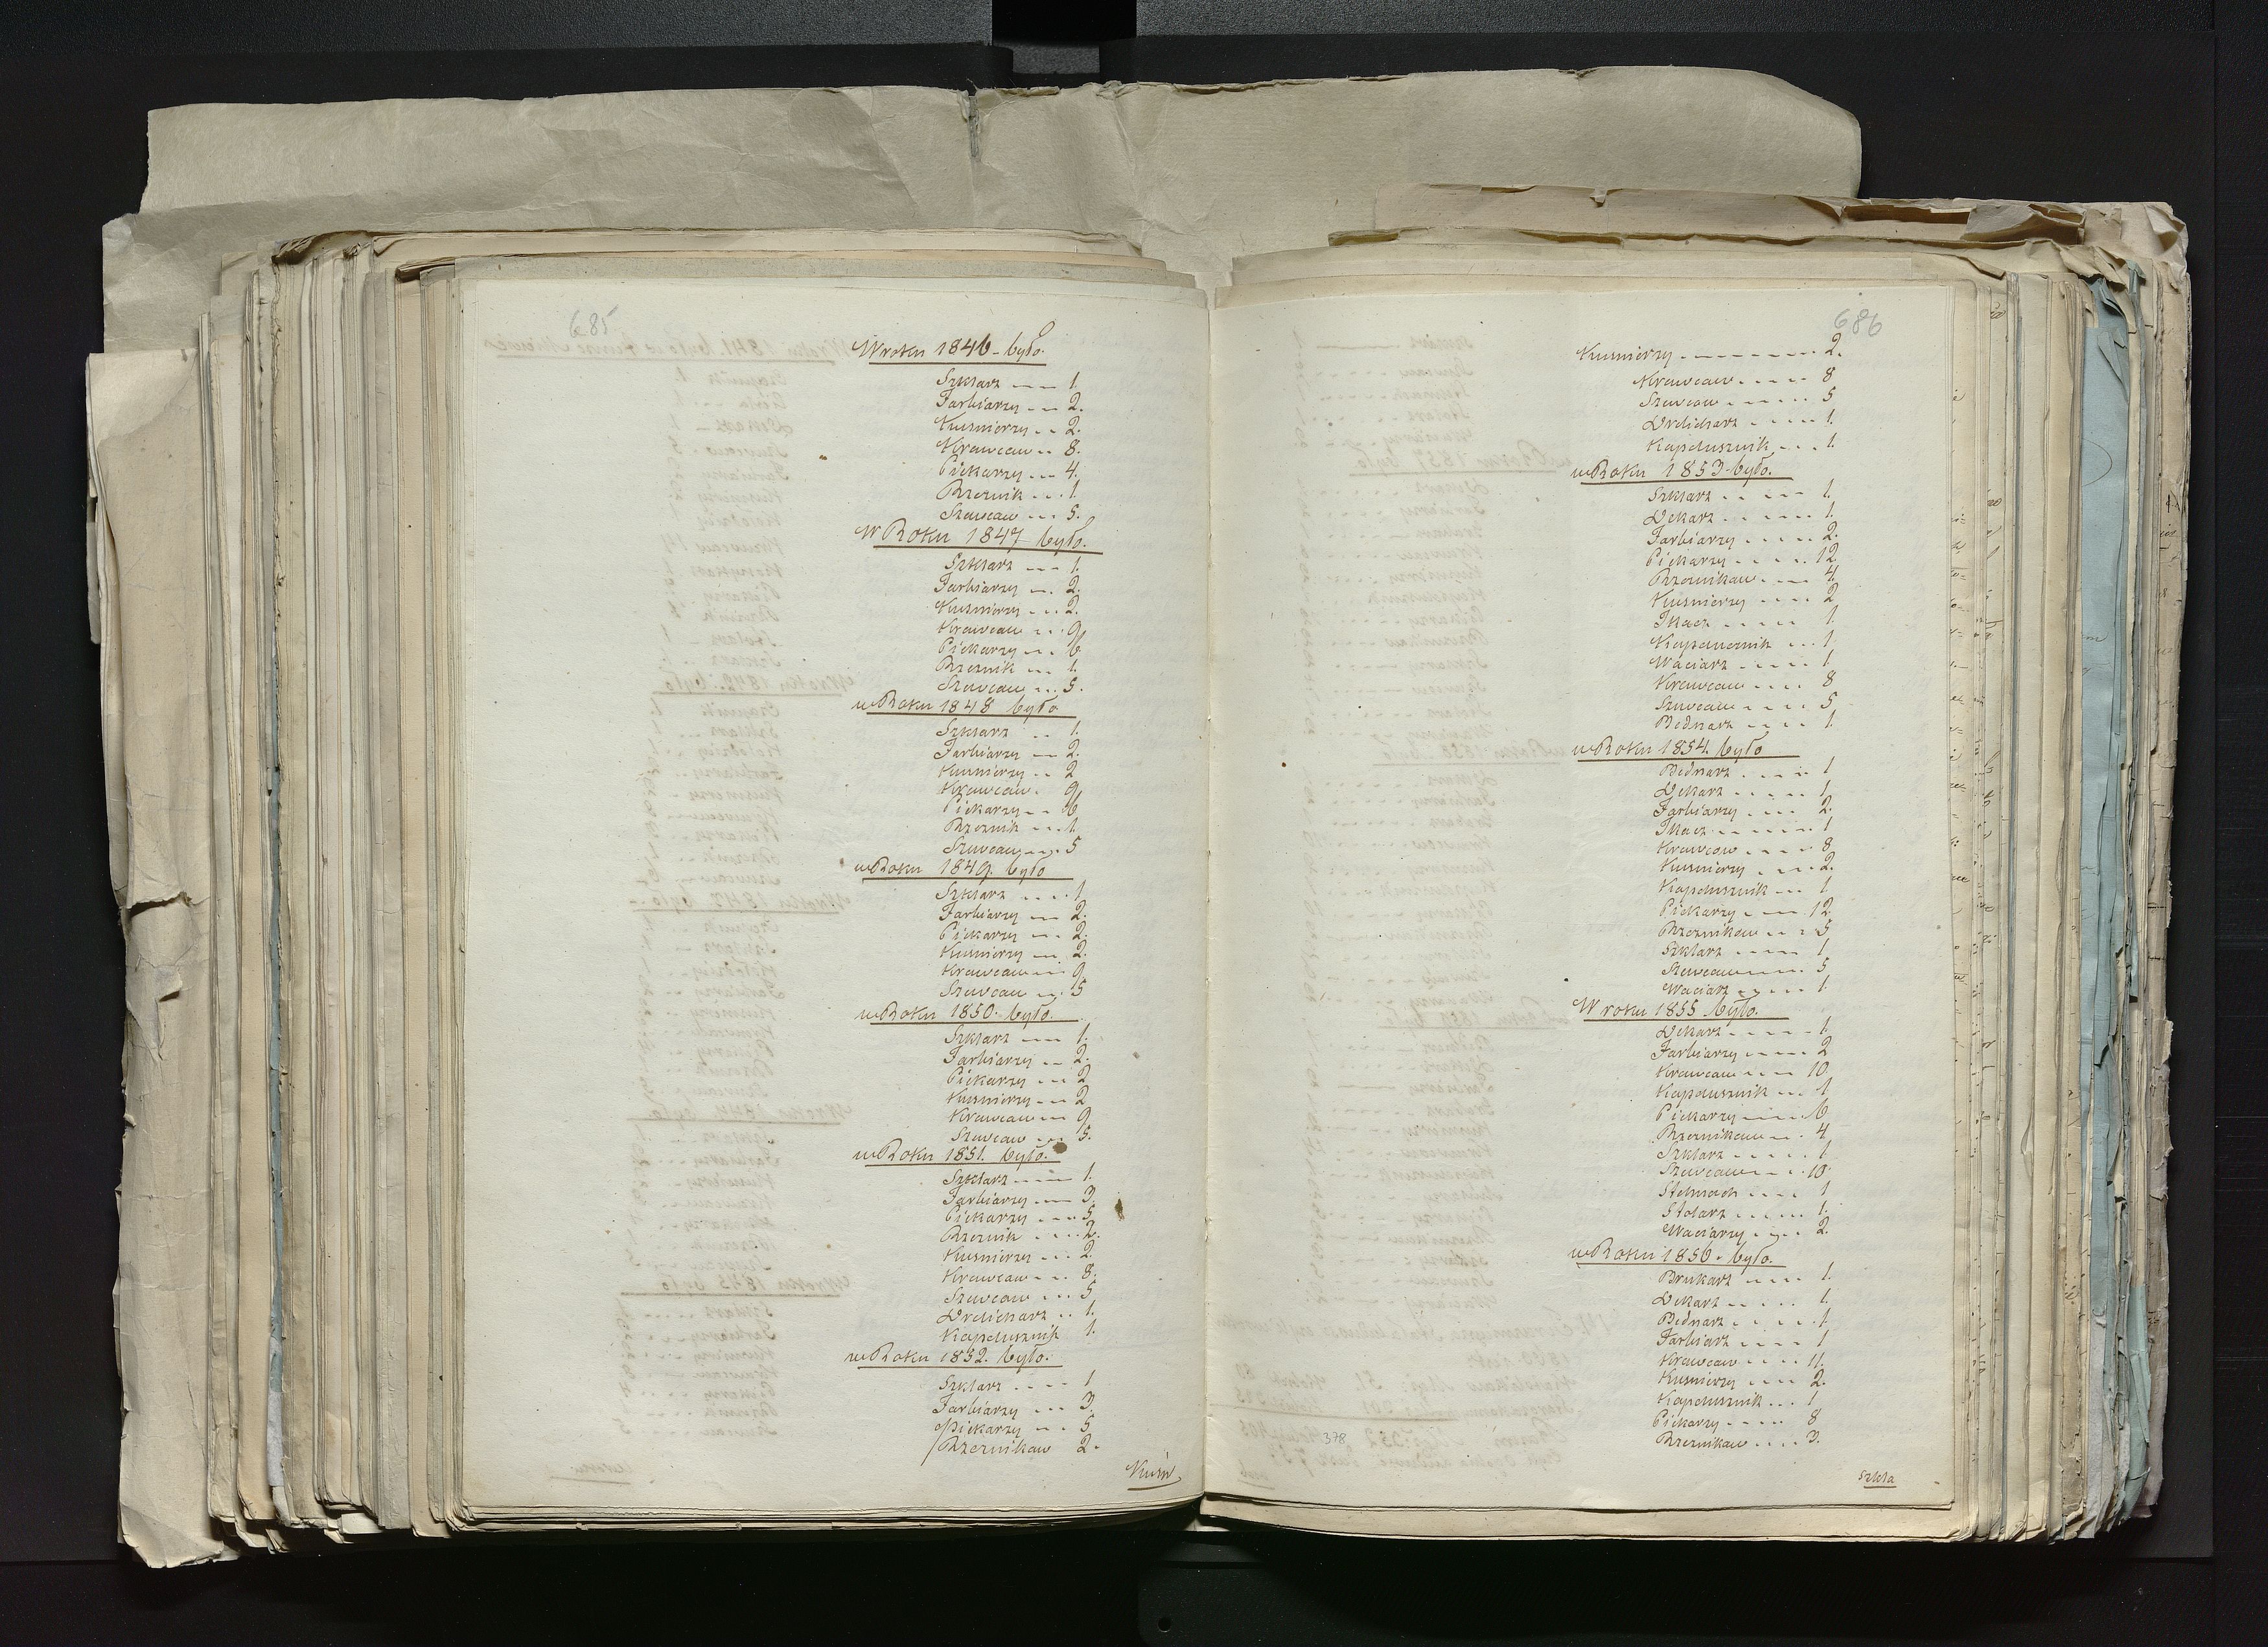 685
Wroku 1846 - było.
Szklarz --- 1.
Farbiarzy --- 2.
Kusnierzy -- 2.
Krawcow -- 8.
Piekarzy --- 4.
Rzeznik --- 1.
Szewcow --- 5.
W Roku 1847 było.
Szklarz --- 1.
Farbiarzy --- 2.
Kusnierzy --- 2.
Krawcow --- 9
Piekarzy --- 6
Rzeznik --- 1.
Szewcow --- 5.
w Roku 1848 było
Szklarz -- 1.
Farbiarzy --- 2.
Kusnierzy -- 2
Krawcow - 9
Piekarzy --- 6
Rzeznik --- 1.
Szewcow --- 5
w Roku 1849. było
Szklarz --- 1
Farbiarzy --- 2.
Piekarzy --- 2.
Kusnierzy --- 2.
Krawcow --- 9.
Szewcow --- 5
w Roku 1850. było.
Szklarz --- 1.
Farbiarzy -- 2.
Piekarzy --- 2
Kusnierzy --- 2
Krawcow --- 9
Szewcow --- 5.
w Roku 1851. było.
Szklarz --- 1.
Farbiarzy --- 3.
Piekarzy --- 5
Rzeznik --- 2.
Kusnierzy --- 2.
Krawcow --- 8.
Szewcow --- 5
Drelicharz -- 1.
Kapelusznik 1.
w Roku 1852. było.
Szklarz ---- 1
Farbiarzy --- 3.
Piekarzy --- 5
Rzeznikow 2.
Kuśn
686
Kusnierzy -------- 2.
Krawcow ----- 8
Szewcow ------ 5
Drelicharz ----- 1.
Kapelusznik --- 1.
w Roku 1853 było.
Szklarz -- --- 1.
Dekarz -- --- 1.
Farbiarzy ---- 2.
Piekarzy ----- 12
Rzeznikow --- 4.
Kusnierzy ---- 2
Tkacz ----- 1.
Kapelusznik --- 1
Waciarz ---- 1
Krawcow ---- 8
Szewcow ---- 5
Bednarz ---- 1.
w Roku 1854. było
Bednarz ---- 1
Dekarz ----- 1
Farbiarzy --- 2.
Tkacz ------ 1
Krawcow ---- 8
Kusnierzy --- 2.
Kapelusznik --- 1
Piekarzy ---- 12
Rzeznikow --- 5
Szklarz ---- 1
Szewcow ---- 5
Waciarz ---- 1.
W roku 1855 było.
Dekarz ----- 1.
Farbiarzy ---- 2
Krawcow --- 10.
Kapelusznik --- 1
Piekarzy ---- 6
Rzeznikow -- 4
Szklarz ----- 1
Szewcow ---- 10
Stelmach ---- 1
Stolarz ---- 1.
Waciarzy ---- 2.
w Roku 1856. było.
Brukarz ---- 1.
Dekarz ----- 1.
Bednarz ----- 1.
Farbiarz ---- 1
Krawcow ---- 11.
Kusnierzy --- 2.
Kapelusznik --- 1
Piekarzy ---- 8
Rzeznikow ---- 3.
Szkla
378